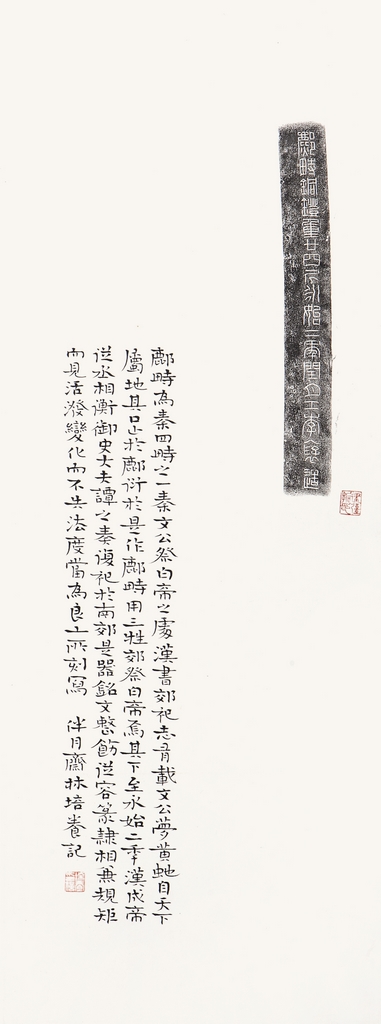 鄜畤銅鐙重廿四斤永始二年閏月工李駿造
鄜畤為秦四畤之一秦文公祭白帝之處漢書郊祀志有載文公夢黃虵自天下
屬地其口止於鄜衍於是作鄜畤用三牲郊祭白帝焉其下至永始二年漢成帝
從丞相衡御史大夫譚之奏復祀於南郊是器銘文整飭從容篆隸相兼規矩
而見活潑變化而不失法度當為良工所刻寫 伴月齋林培養記